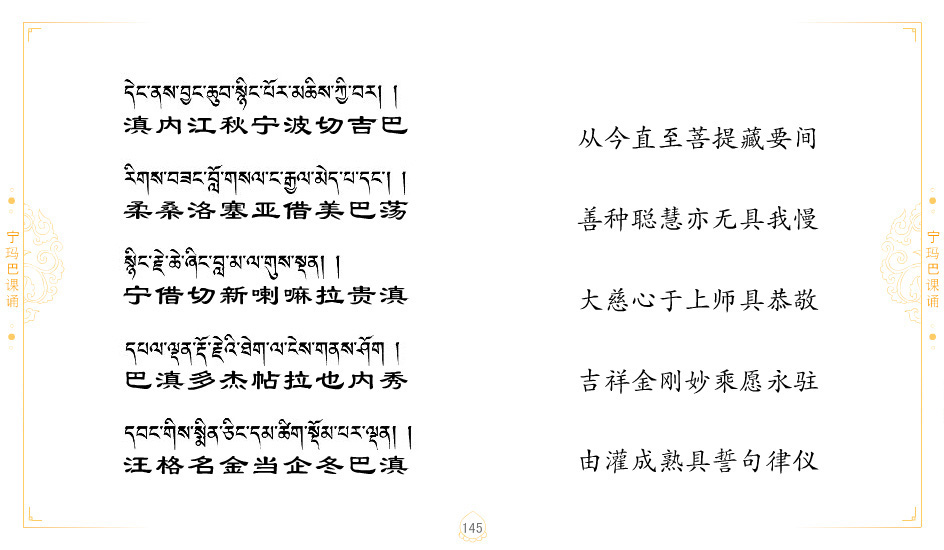 དེང་ནས་བྱང་ཆུབ་སྙིང་པོར་མཆིས་ཀྱི་བར། །
滇内江秋宁波切吉巴
རིགས་བཟང་བློ་གསལ་ང་རྒྱལ་མེད་པ་དང་། །
柔桑洛塞亚借美巴荡
སྙིང་རྗེ་ཆེ་ཞིང་བླ་མ་ལ་གུས་ལྡན། །
宁借切新喇嘛拉贵滇
དཔལ་ལྡན་རྡོ་རྗེའི་ཐེག་ལ་ངེས་གནས་ཤོག །
巴滇多杰帖拉也内秀
དབང་གིས་སྨིན་ཅིང་དམ་ཚིག་སྡོམ་པར་ལྡན། །
汪格名金当企冬巴滇
从今直至菩提藏要间
善种聪慧亦无具我慢
大慈心于上师具恭敬
吉祥金刚妙乘愿永驻
由灌成熟具誓句律仪
宁玛巴课诵
宁玛巴课诵
145